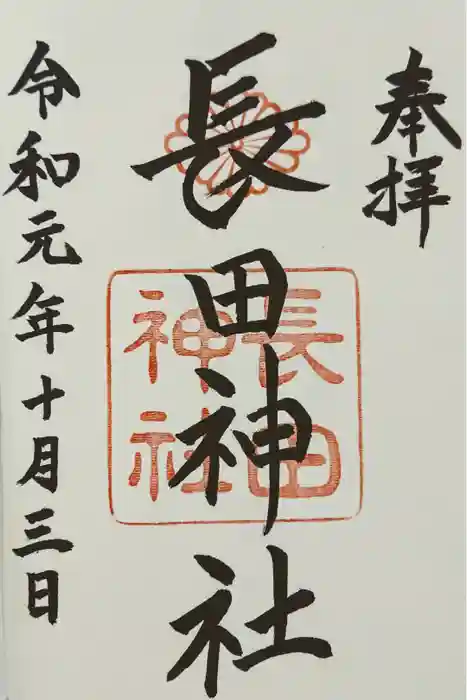 奉拝
長田神社
長田
神社
令和元年十月三日